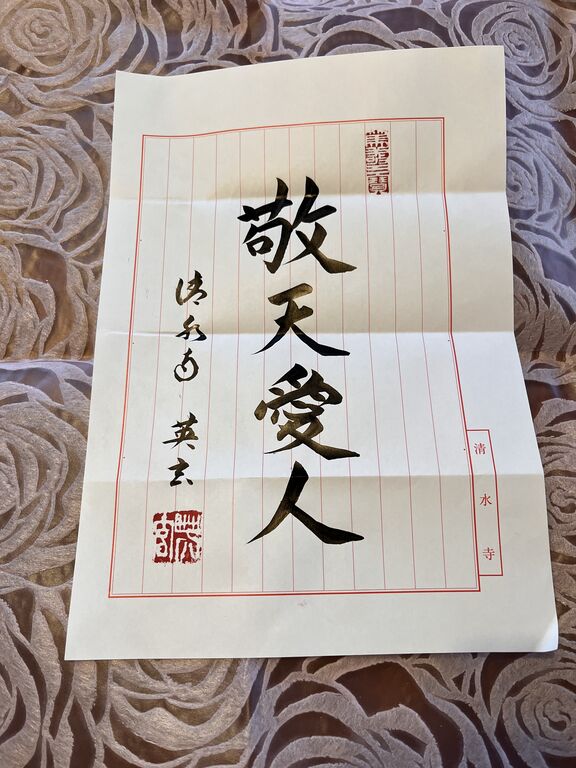 敬天愛人
清水寺 英玄
清水寺